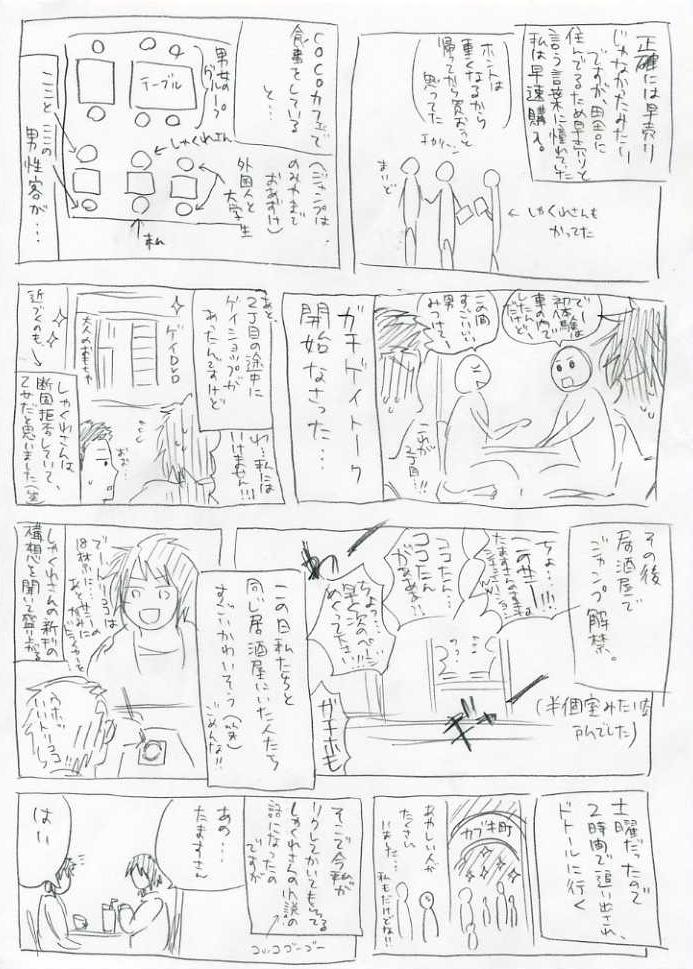 正確には早売り
じゃなかったみたい
ですが、田舎に
住んでるため早売りと
言う言葉に憧れていた
私は早速購入。
ホントは
重くなるから
帰ってから買おっと
思ってた
まいど
←しゃくれさんも
かってた
COCOカフェで
食事をしている
と…
(ジャンプは
のみやまで
おあずけ)
男女の
グループ
テーブル
しゃくれさん
外国人と
大学生
私
こことここの
男性客が…
でー
初体験は
車の中で
したんだ
けど、
この間
すごいいい
男
みつけて、
これが
2丁目…!!
ガチゲイトーク
開始なさった…
あと、
2丁目の途中に
ゲイショップが
あったんですけど
ゲイDVD
大人のおもちゃ
わ…私には
いけません!!!
おお…
近づくのも
しゃくれさんは
断固拒否していて、
乙女だと思いました(笑)
その後
居酒屋で
ジャンプ解禁。
(半個室みたいな
アレでした)
ちょ…!!!
ココたん
ココたん
ちょっ…
早く次のページ
めくって下さい!!!
ギャー
ガチホモ
この日私たちと
同じ居酒屋にいた人たち
すごいかわいそう
ごめんな!!
でー
ココは
18禁に…
ウホッ
いい
しゃくれさんの新刊の
構想を聞いて盛り上がる。
土曜だったので
2時間で追い出され、
ドトールに行く
カブキ町
あやしい人が
たくさん
いました…
私もだけどな!!
そこで今私が
リクしてかいてもらってる
しゃくれさんの小説の
話になったの
ですが
ココココゴーゴー
あの…
たますさん
はい